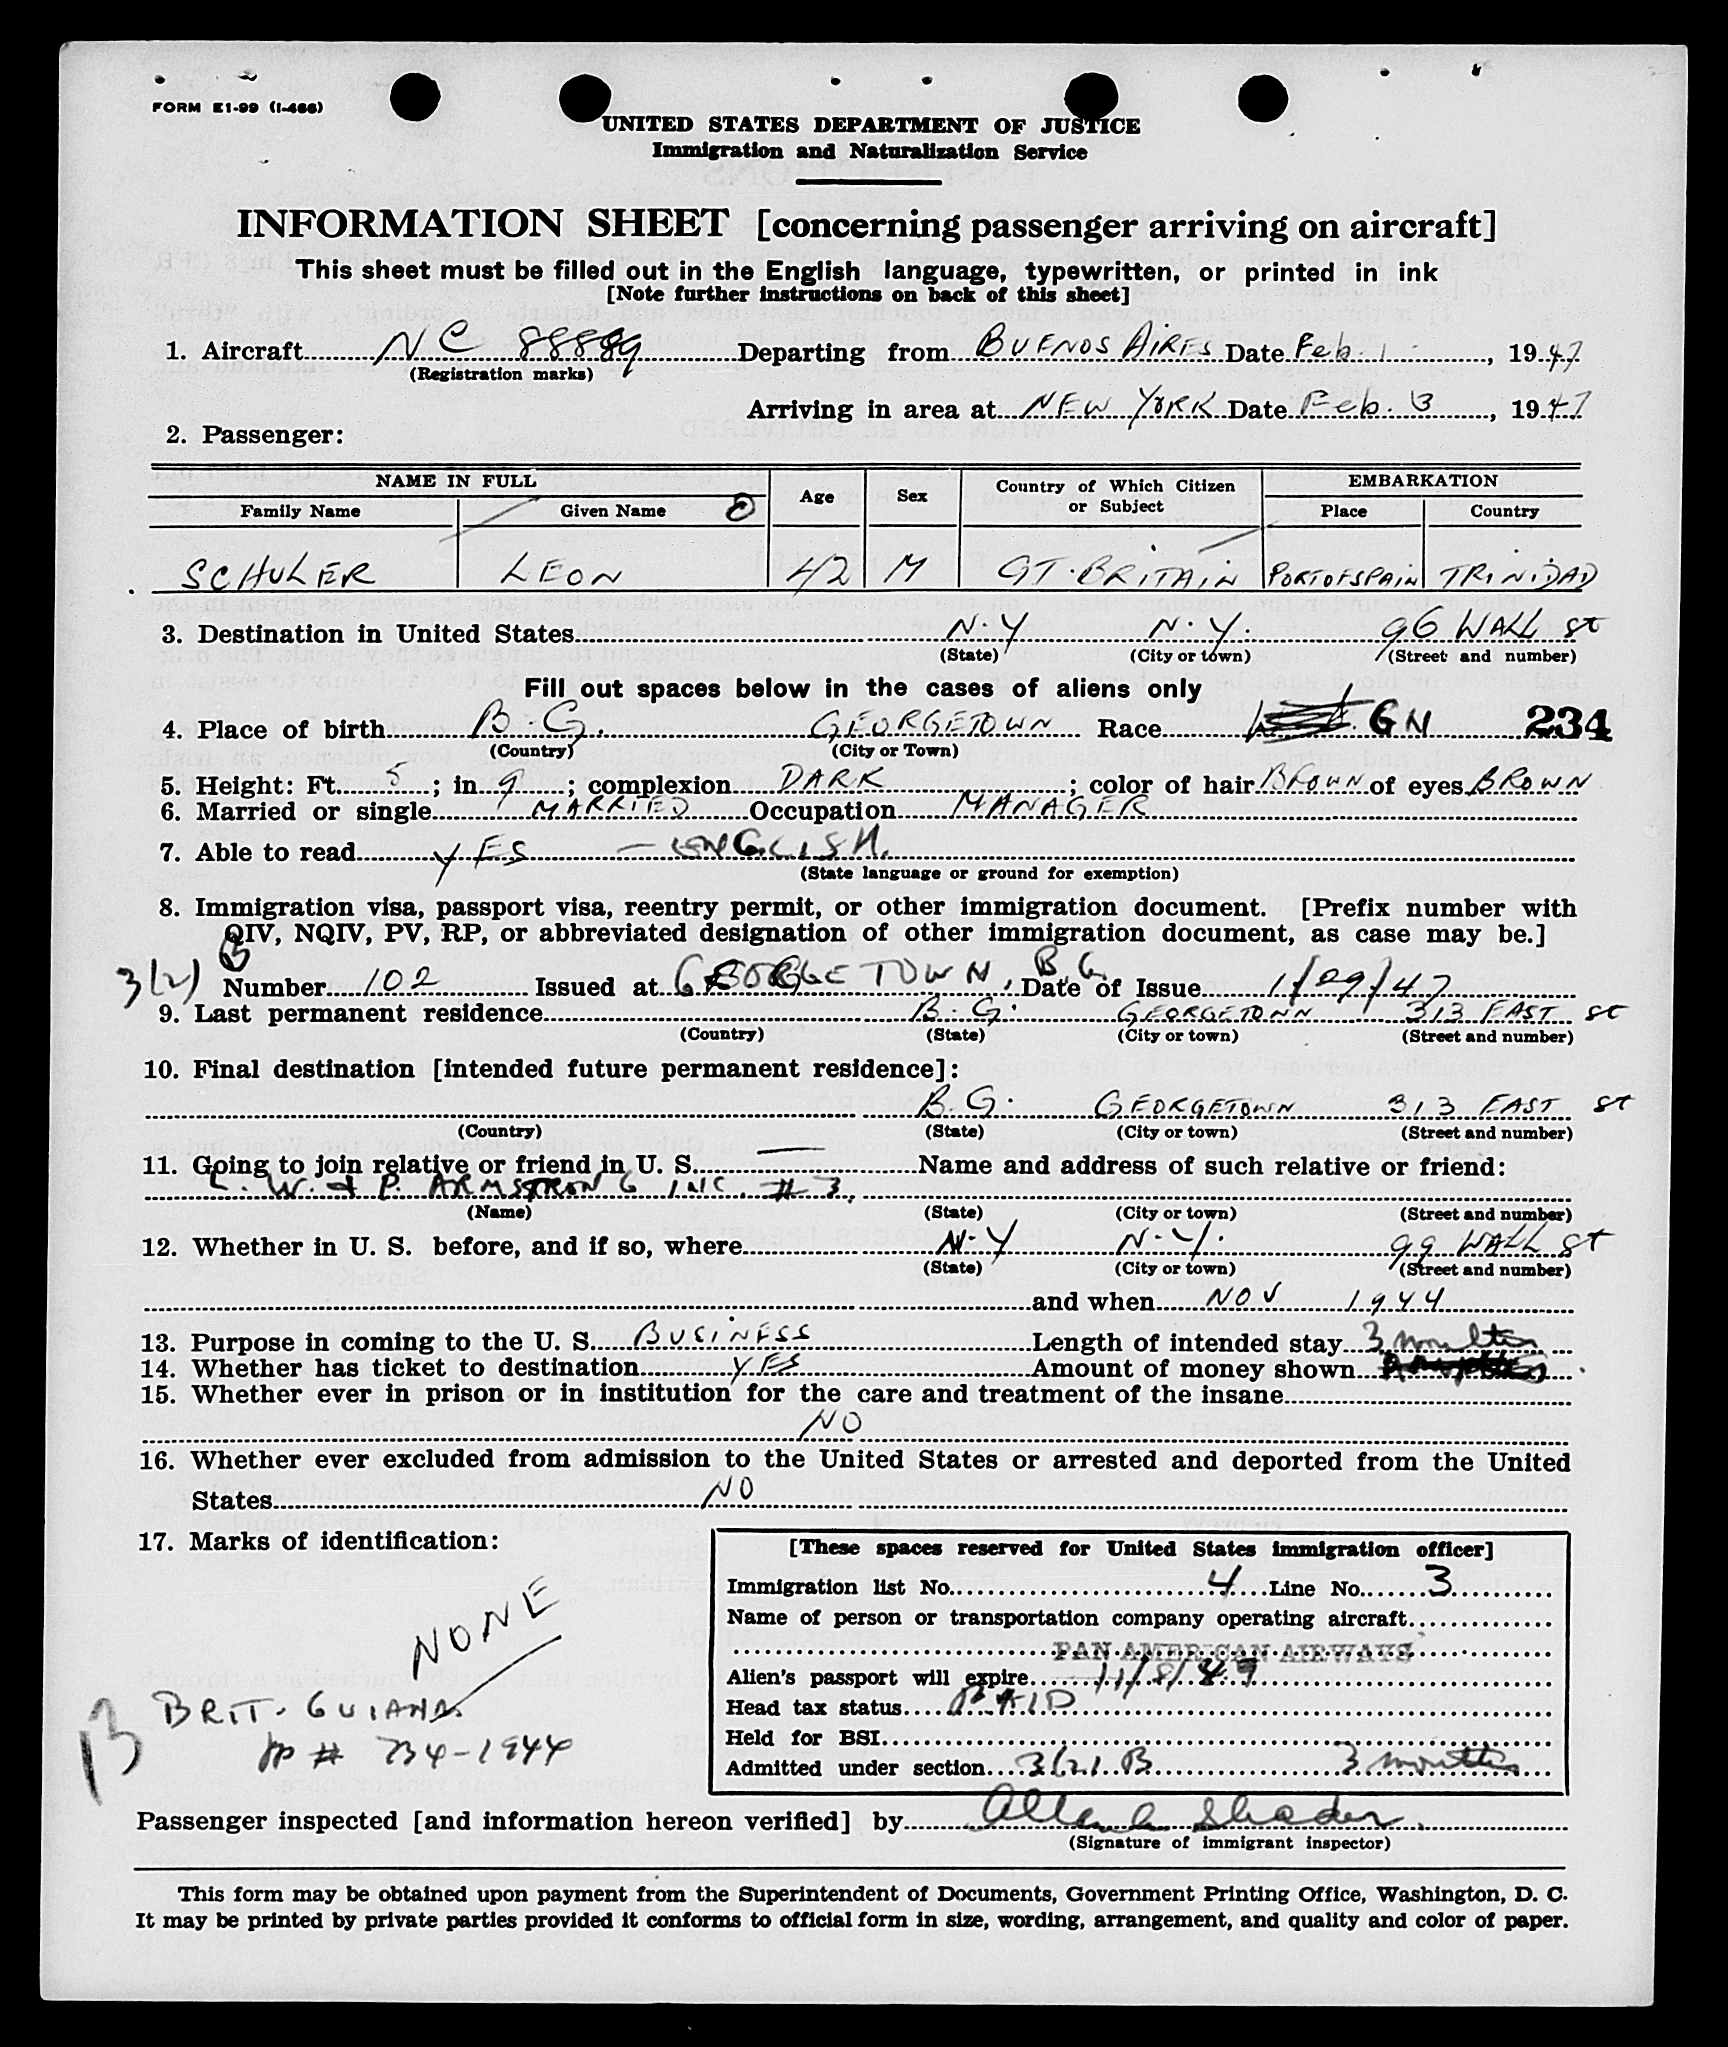 FORM E1-99 (I-466)
UNITED STATES DEPARTMENT OF JUSTICE
Immigration and Naturalization Service
INFORMATION SHEET [concerning passenger arriving on aircraft]
This sheet must be filled out in the English language, typewritten, or printed in ink
[Note further instructions on back of this sheet]
1. Aircraft NC 88889 Departing from BUENOS AIRES Date Feb. 1, 1947
(Registration marks)
Arriving in area at NEW YORK Date Feb. 3, 1947
2. Passenger:
NAME IN FULL Age Sex Country of Which Citizen or Subject EMBARKATION
Family Name Given Name Place Country
SCHULER LEON 42 M GT. BRITAIN PORT OF SPAIN TRINIDAD
3. Destination in United States N.Y N.Y. 96 WALL st
(State) (City or town) (Street and number)
Fill out spaces below in the cases of aliens only
4. Place of birth B.G. GEORGETOWN Race GN 234
(Country) (City or Town)
5. Height: Ft. 5; in 9; complexion DARK; color of hair BROWN of eyes BROWN
6. Married or single MARRIED Occupation MANAGER
7. Able to read YES - ENGLISH.
(State language or ground for exemption)
8. Immigration visa, passport visa, reentry permit, or other immigration document. [Prefix number with
QIV, NQIV, PV, RP, or abbreviated designation of other immigration document, as case may be.]
3(2) B Number 102 Issued at GEORGETOWN, B.G. Date of Issue 1/29/47
9. Last permanent residence B.G. GEORGETOWN 313 EAST st
(Country) (State) (City or town) (Street and number)
10. Final destination [intended future permanent residence]:
B.G. GEORGETOWN 313 EAST st
(Country) (State) (City or town) (Street and number)
11. Going to join relative or friend in U. S. — Name and address of such relative or friend:
L. W. & P. ARMSTRONG INC. # 3.
(Name) (State) (City or town) (Street and number)
12. Whether in U. S. before, and if so, where N.Y N.Y. 99 WALL St
(State) (City or town) (Street and number)
and when NOV 1944
13. Purpose in coming to the U. S. BUSINESS Length of intended stay 3 months
14. Whether has ticket to destination YES Amount of money shown
15. Whether ever in prison or in institution for the care and treatment of the insane
NO
16. Whether ever excluded from admission to the United States or arrested and deported from the United
States NO
17. Marks of identification:
NONE
B BRIT. GUIANA
PP # 734-1944
[These spaces reserved for United States immigration officer]
Immigration list No. 4 Line No. 3
Name of person or transportation company operating aircraft
PAN AMERICAN AIRWAYS
Alien's passport will expire 11/8/49
Head tax status PAID
Held for BSI
Admitted under section 3(2) B 3 months
Passenger inspected [and information hereon verified] by
(Signature of immigrant inspector)
This form may be obtained upon payment from the Superintendent of Documents, Government Printing Office, Washington, D. C.
It may be printed by private parties provided it conforms to official form in size, wording, arrangement, and quality and color of paper.